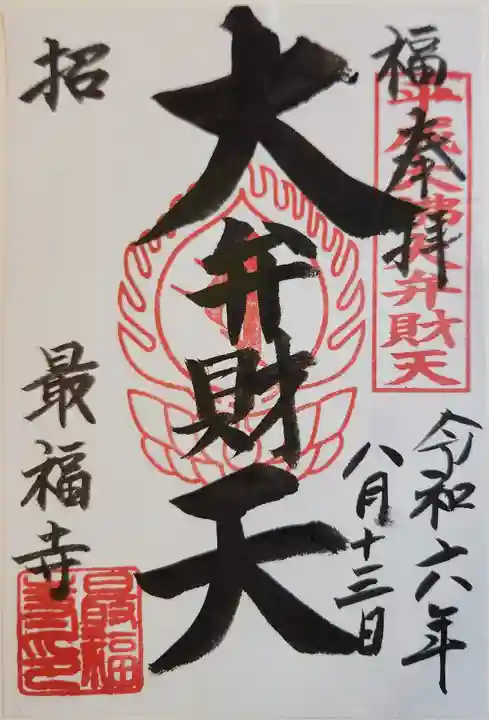 福
奉拝
弁財天
令和六年
八月十三日
大弁財天
招
最福寺
最福
寺印